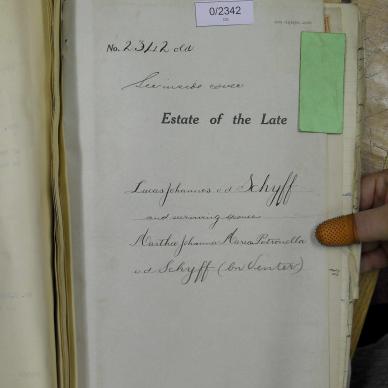 0/2342
No. 2342 old
See inside cover
Estate of the Late
Lucas Johannes v d Schyff
and surviving spouse
Martha Johanna Maria Petronella
v d Schyff (bn Venter)